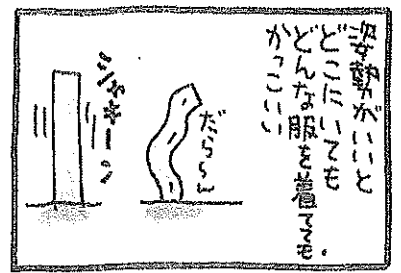 姿勢がいいと
どこにいても
どんな服を着てても
かっこいい
だら〜ん
シャキーン